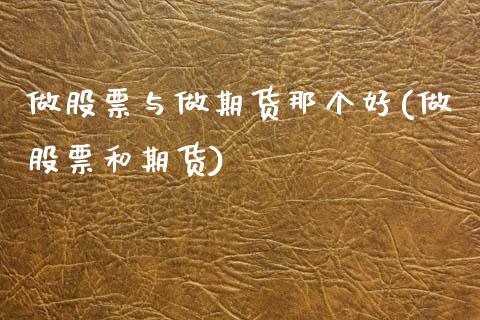 做股票与做期货那个好(做
股票和期货)